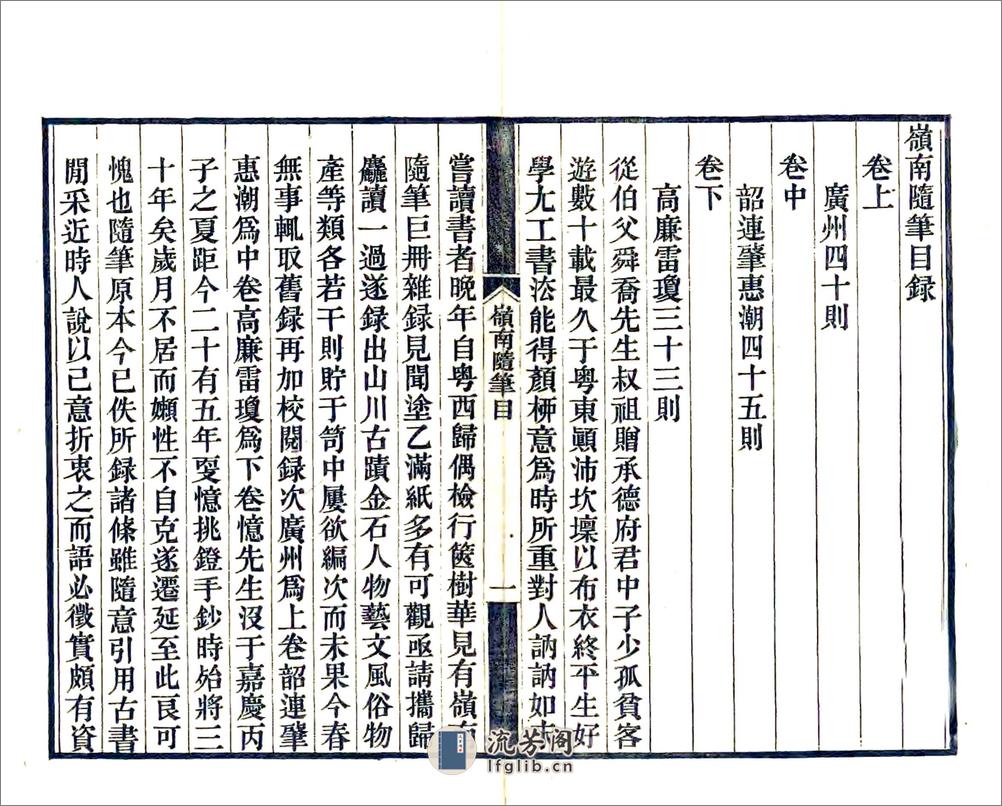 嶺南隨筆目録
卷上
廣州四十則
卷中
韶連肇惠潮四十五則
卷下
高廉雷瓊三十三則
從伯父舜喬先生叔祖贈承德府君中子少孤貧客
遊數十載最久于粵東顚沛坎壈以布衣終平生好
學尢工書㳒能得顏桺意爲時所重對人訥訥如未
嶺南隨筆目
一
嘗讀書者晚年自粵西歸偶檢行篋樹華見有嶺南
隨筆巨冊雜録見聞塗乙滿紙多有可觀亟請攜歸
麤讀一過遂録出山川古蹟金石人物藝文風俗物
產等類各若干則貯于笥中屢欲編次而未果今春
無事輒取舊録再加校閱録次廣州爲上卷韶連肇
惠潮爲中卷高廉雷瓊爲下卷憶先生沒于嘉慶丙
子之夏距今二十有五年叟憶挑鐙手鈔時殆將三
十年矣歲月不居而嬾性不自克遂遷延至此良可
愧也隨筆原本今已佚所録諸條雖隨意引用古書
閒采近時人說以己意折衷之而語必徵實頗有資
流芳閣
lfglib.cn